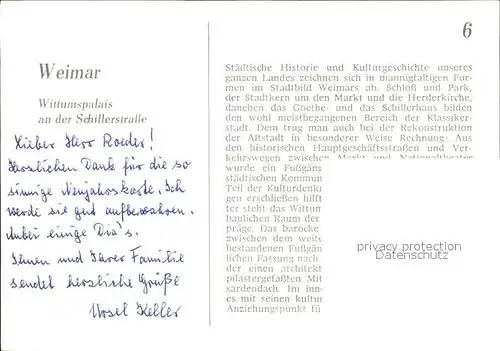 6
Weimar
Wittumspalais
an der Schillerstraße
Lieber Herr Roeder!
Herzlichen Dank für die so
sinnige Neujahrskarte. Ich
werde sie gut aufbewahren.
Anbei einige Dia's.
Ihnen und Ihrer Familie
sendet herzliche Grüße
Ursel Keller
Städtische Historie und Kulturgeschichte unseres
ganzen Landes zeichnen sich in mannigfaltigen For-
men im Stadtbild Weimars ab. Schloß und Park,
der Stadtkern um den Markt und die Herderkirche,
daneben das Goethe- und das Schillerhaus bilden
den wohl meistbegangenen Bereich der Klassiker-
stadt. Dem trug man auch bei der Rekonstruktion
der Altstadt in besonderer Weise Rechnung: Aus
den historischen Hauptgeschäftsstraßen und Ver-
kehrswegen zwischen Markt und Nationaltheater
wurde ein Fußgäng
städtischen Kommun
Teil der Kulturdenk
gen erschließen hilft
ter steht das Wittum
baulichen Raum der
präge. Das barocke
zwischen dem weite
bestandenen Fußgän
lichen Fassung nach
der einen architekt
pilastergefaßten. Mit
sardendach. Im inn-
es mit seinen kultur
Anziehungspunkt fü
privacy protection
Datenschutz